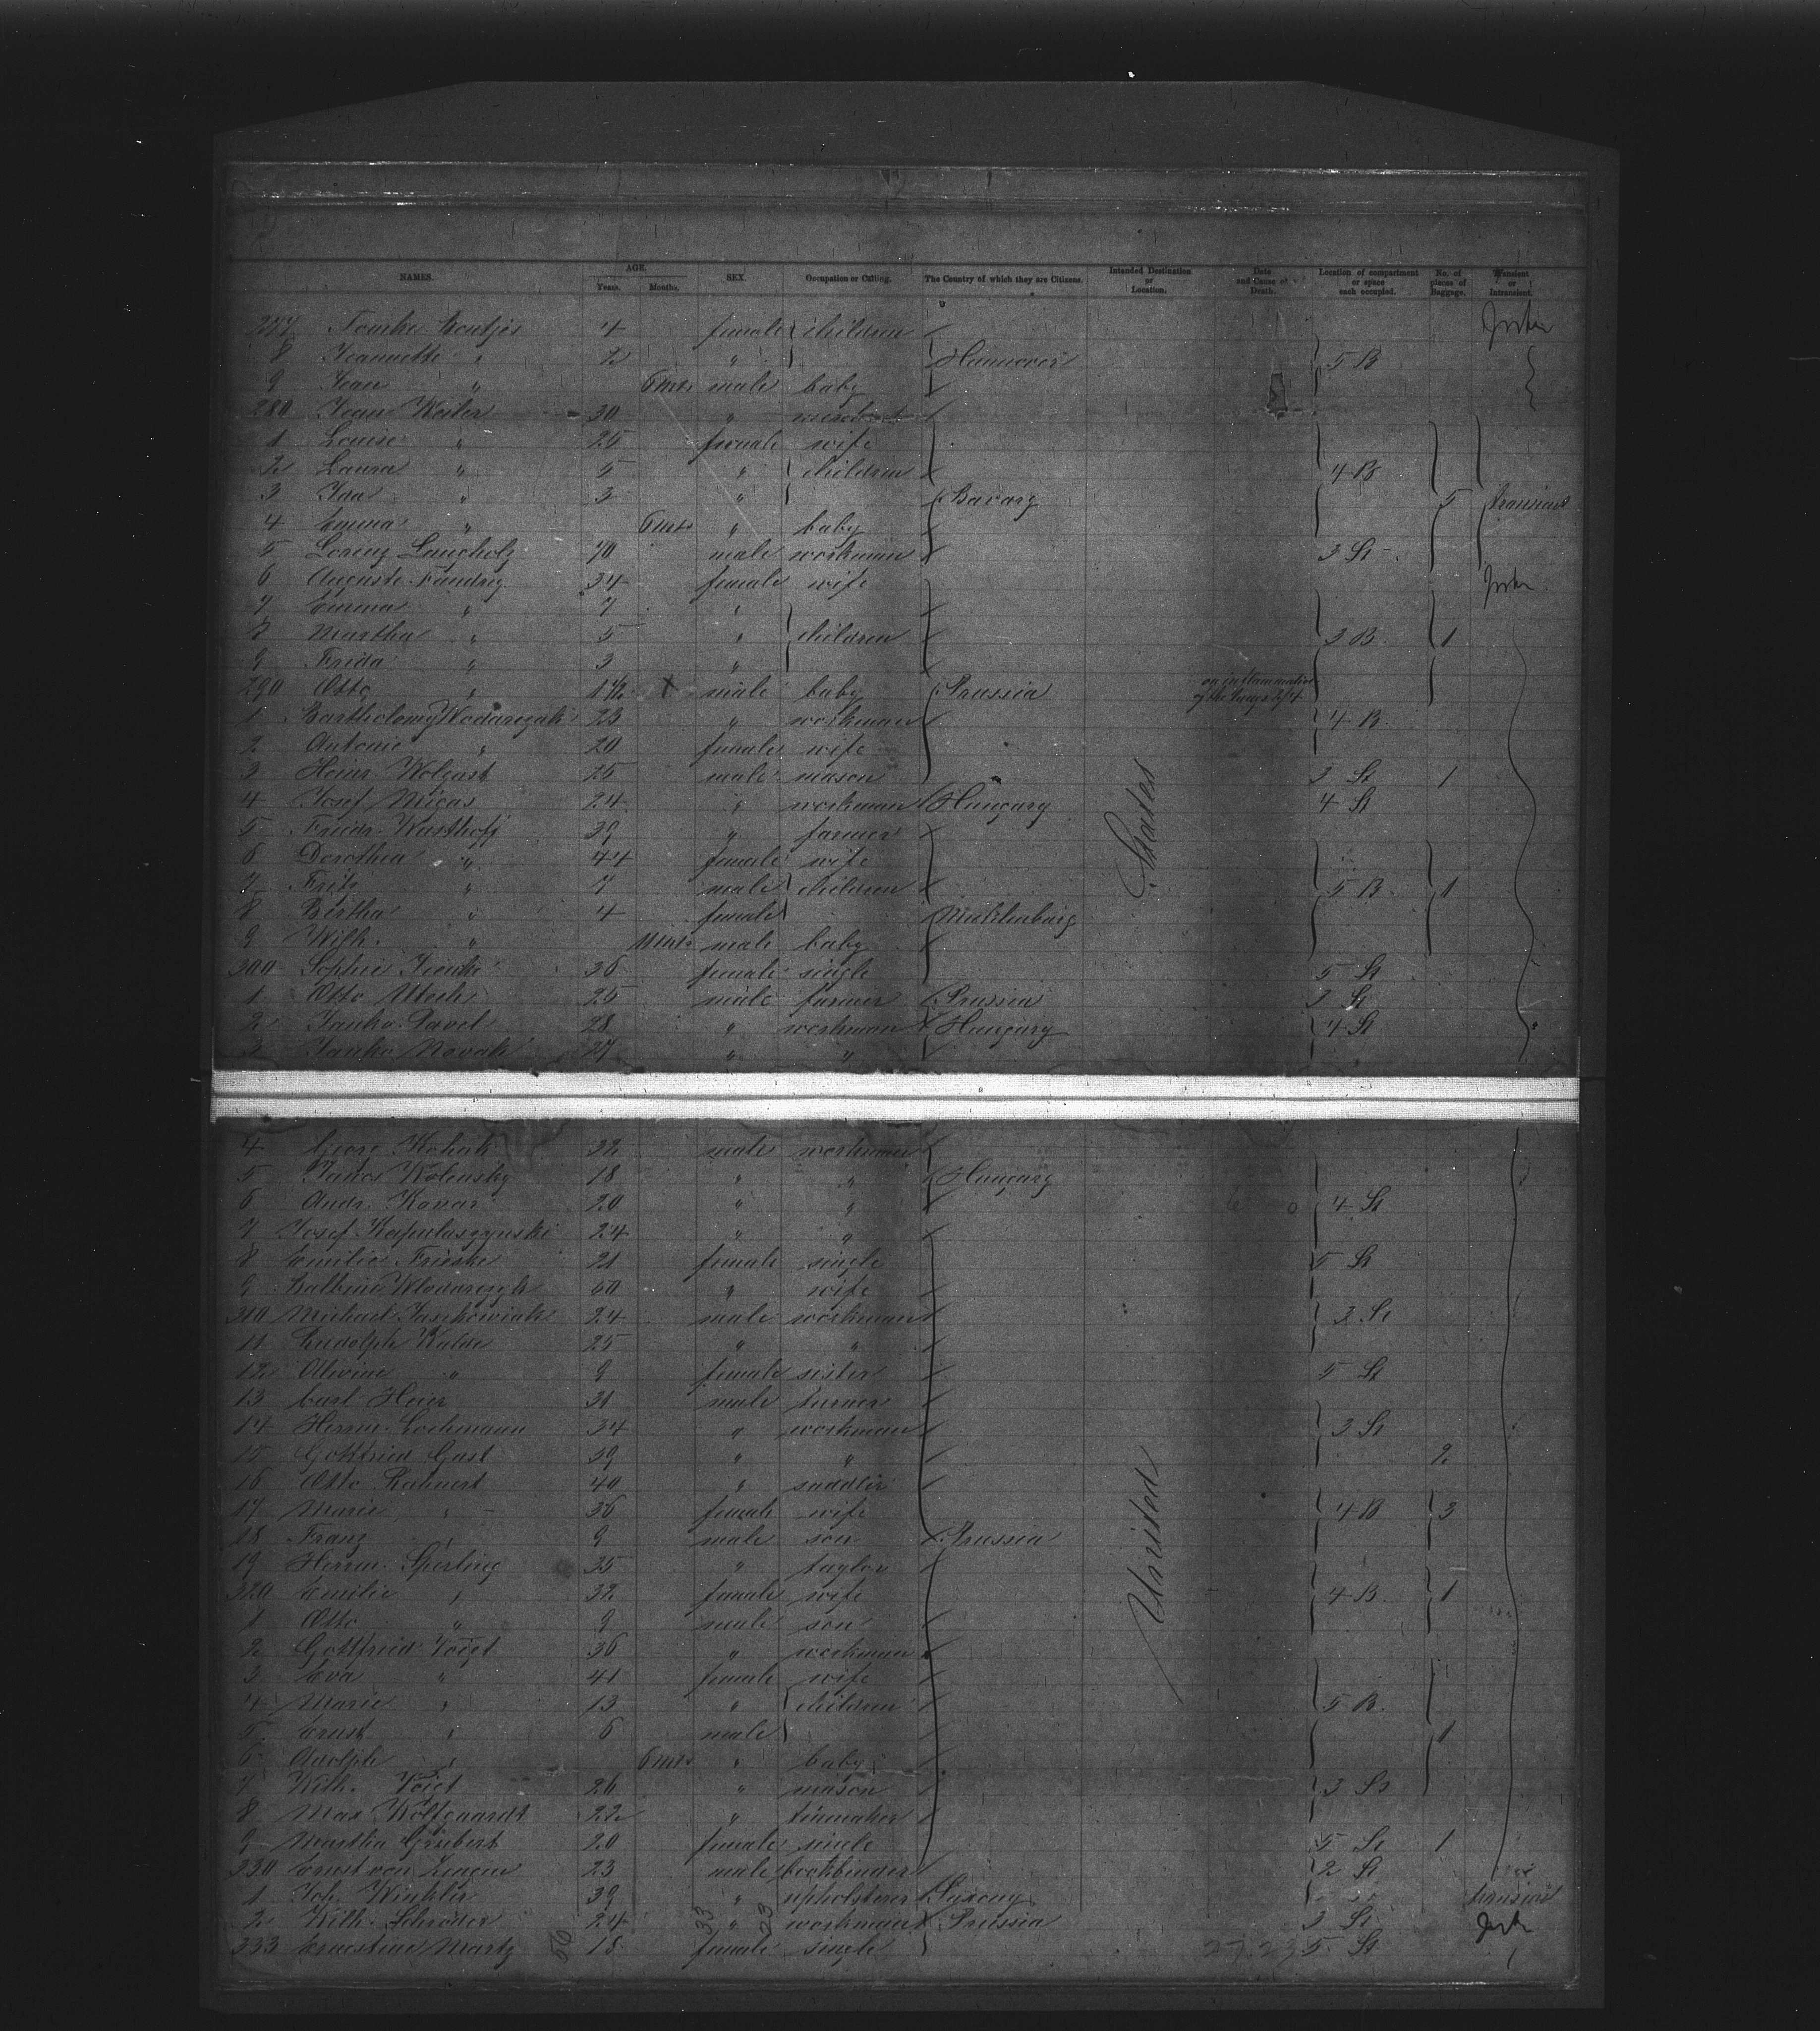 NAMES. AGE. SEX. Occupation or Calling. The Country of which they are Citizens. Intended Destination or Location. Date and Cause of Death. Location of compartment or space each occupied. No. of pieces of Baggage. Transient or Intransient.
Years. Months.
277 4 female children
8 Jeannette " 2 " Hannover 5 B
9 Jean " 6 mts male baby
280 Jean Weiler 30 "
1 Louise " 25 female wife
2 Laura " 5 " children 4 B
3 Ida " 3 " Bavary 5 transient
4 Emma " 6 mts " baby
5 Lorenz Langholz 70 male workman 3 St
6 Auguste Fandrey 34 female wife
7 Emma " 7 "
8 Martha " 5 " children 3 B 1
9 Frida " 3 "
290 Otto " 1 1/2 X male baby Prussia
1 Bartholomy Wodarczak 23 " workman 4 B
2 Antonie " 20 female wife
3 Heinr. Wolgast 25 male mason 3 St 1
4 Josef Micas 24 " workman Hungary 4 St
5 Friedr. Kasthoff 39 " farmer
6 Dorothea " 44 female wife
7 Fritz " 7 male children 5 B 1
8 Bertha " 4 female Mecklenburg
9 Wilh. " 11 mts male baby
300 Sophie 36 female single 5 St
1 Otto Utech 25 male farmer Prussia 3 St
2 Janko Pavel 28 " workman Hungary 4 St
3 Janko Novak 27 " "
States
4 Georg 22 male workman
5 Janos Kolensky 18 " " Hungary
6 Andr. Kovar 20 " " 4 St
7 Josef 24 " "
8 Emilie Frieske 21 female single 5 St
9 Balbina Wlodarczyk 60 " wife
310 Michael Jaschowiak 24 male workman 3 St
11 Rudolph Kulde 25 " "
12 Olwine " 9 female sister 5 St
13 Carl Heier 31 male turner
14 Herrm. Lochmann 34 " workman 3 St
15 Gottfried Gast 59 " " 2
16 Otto Rahnert 40 " saddler
17 Marie " 36 female wife 4 B 3
18 Franz " 9 male son Prussia
19 Herrm. Sperling 35 " taylor
320 Emilie " 32 female wife 4 B 1
1 Otto " 9 male son
2 Gottfried Voigt 36 " workman
3 Eva " 41 female wife
4 Marie " 13 " children 5 B
5 Ernst " 6 male 1
6 Adolph " 6 mts " baby
7 Wilh. Voigt 26 " mason 3 St
8 Max Wolfgaardt 22 " tinmaker
9 Martha Grubert 20 female single 5 St 1
330 Ernst von Lingen 23 male bookbinder 2 St
1 Joh. Winkler 39 " upholsterer Saxony transient
2 Wilh. Schröder 24 " workman Prussia 3 St
333 Ernestine Martz 18 female single 5 St
United
56 33 23